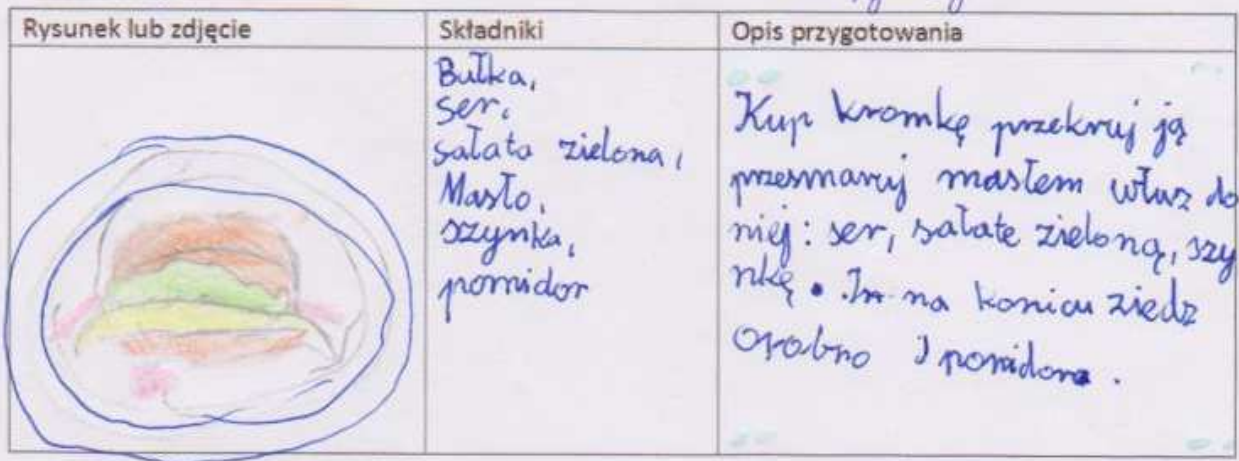 Rysunek lub zdjęcie
Składniki
Opis przygotowania
Bułka,
ser,
sałata zielona,
Masło,
szynka,
pomidor
Kup kromkę przekruj ją
przesmaruj masłem włuz do
niej: ser, sałate zieloną, szy
nkę. na konicu ziedz
1 pomidora.